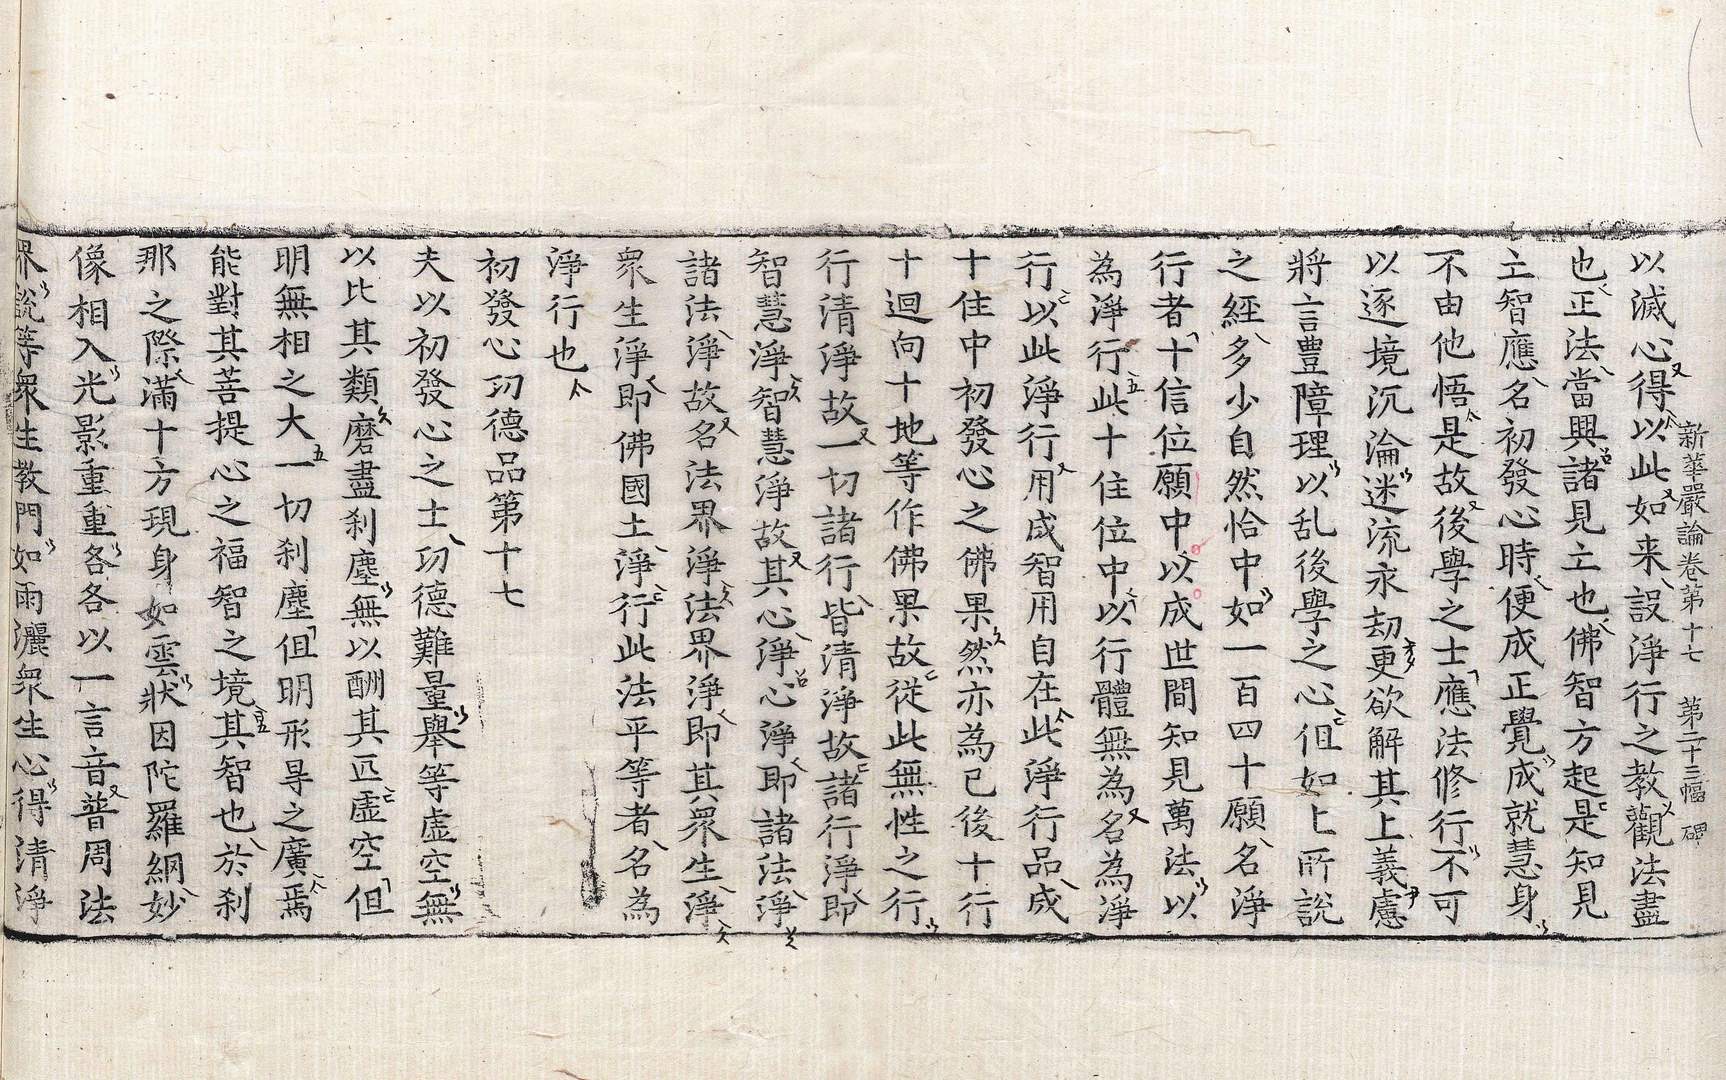 新華嚴論卷第十七 第二十三幅 碑
以滅心得以此如来設淨行之教觀法盡
也正法當興諸見立也佛智方起是知見
立智應名初發心時便成正覺成就慧身
不由他悟是故後學之士應法修行不可
以逐境沉淪迷流永劫更欲解其上義慮
將言豊障理以乱後學之心但如上所說
之經多少自然恰中如一百四十願名淨
行者十信位願中以成世間知見萬法以
為淨行此十住位中以行體無為名為淨
行以此淨行用成智用自在此淨行品成
十住中初發心之佛果然亦為已後十行
十迴向十地等作佛果故従此無性之行
行清淨故一切諸行皆清淨故諸行淨即
智慧淨智慧淨故其心淨心淨即諸法淨
諸法淨故名法界淨法界淨即其衆生淨
衆生淨即佛國土淨行此法平等者名為
淨行也
初發心功德品第十七
夫以初發心之士功德難量舉等虛空無
以比其類磨盡刹塵無以酬其匹虛空但
明無相之大一切刹塵但明形㝵之廣焉
能對其菩提心之福智之境其智也於刹
那之際滿十方現身如雲狀因陀羅網妙
像相入光影重重各各以一言音普周法
界說等衆生教門如雨灑衆生心得清淨